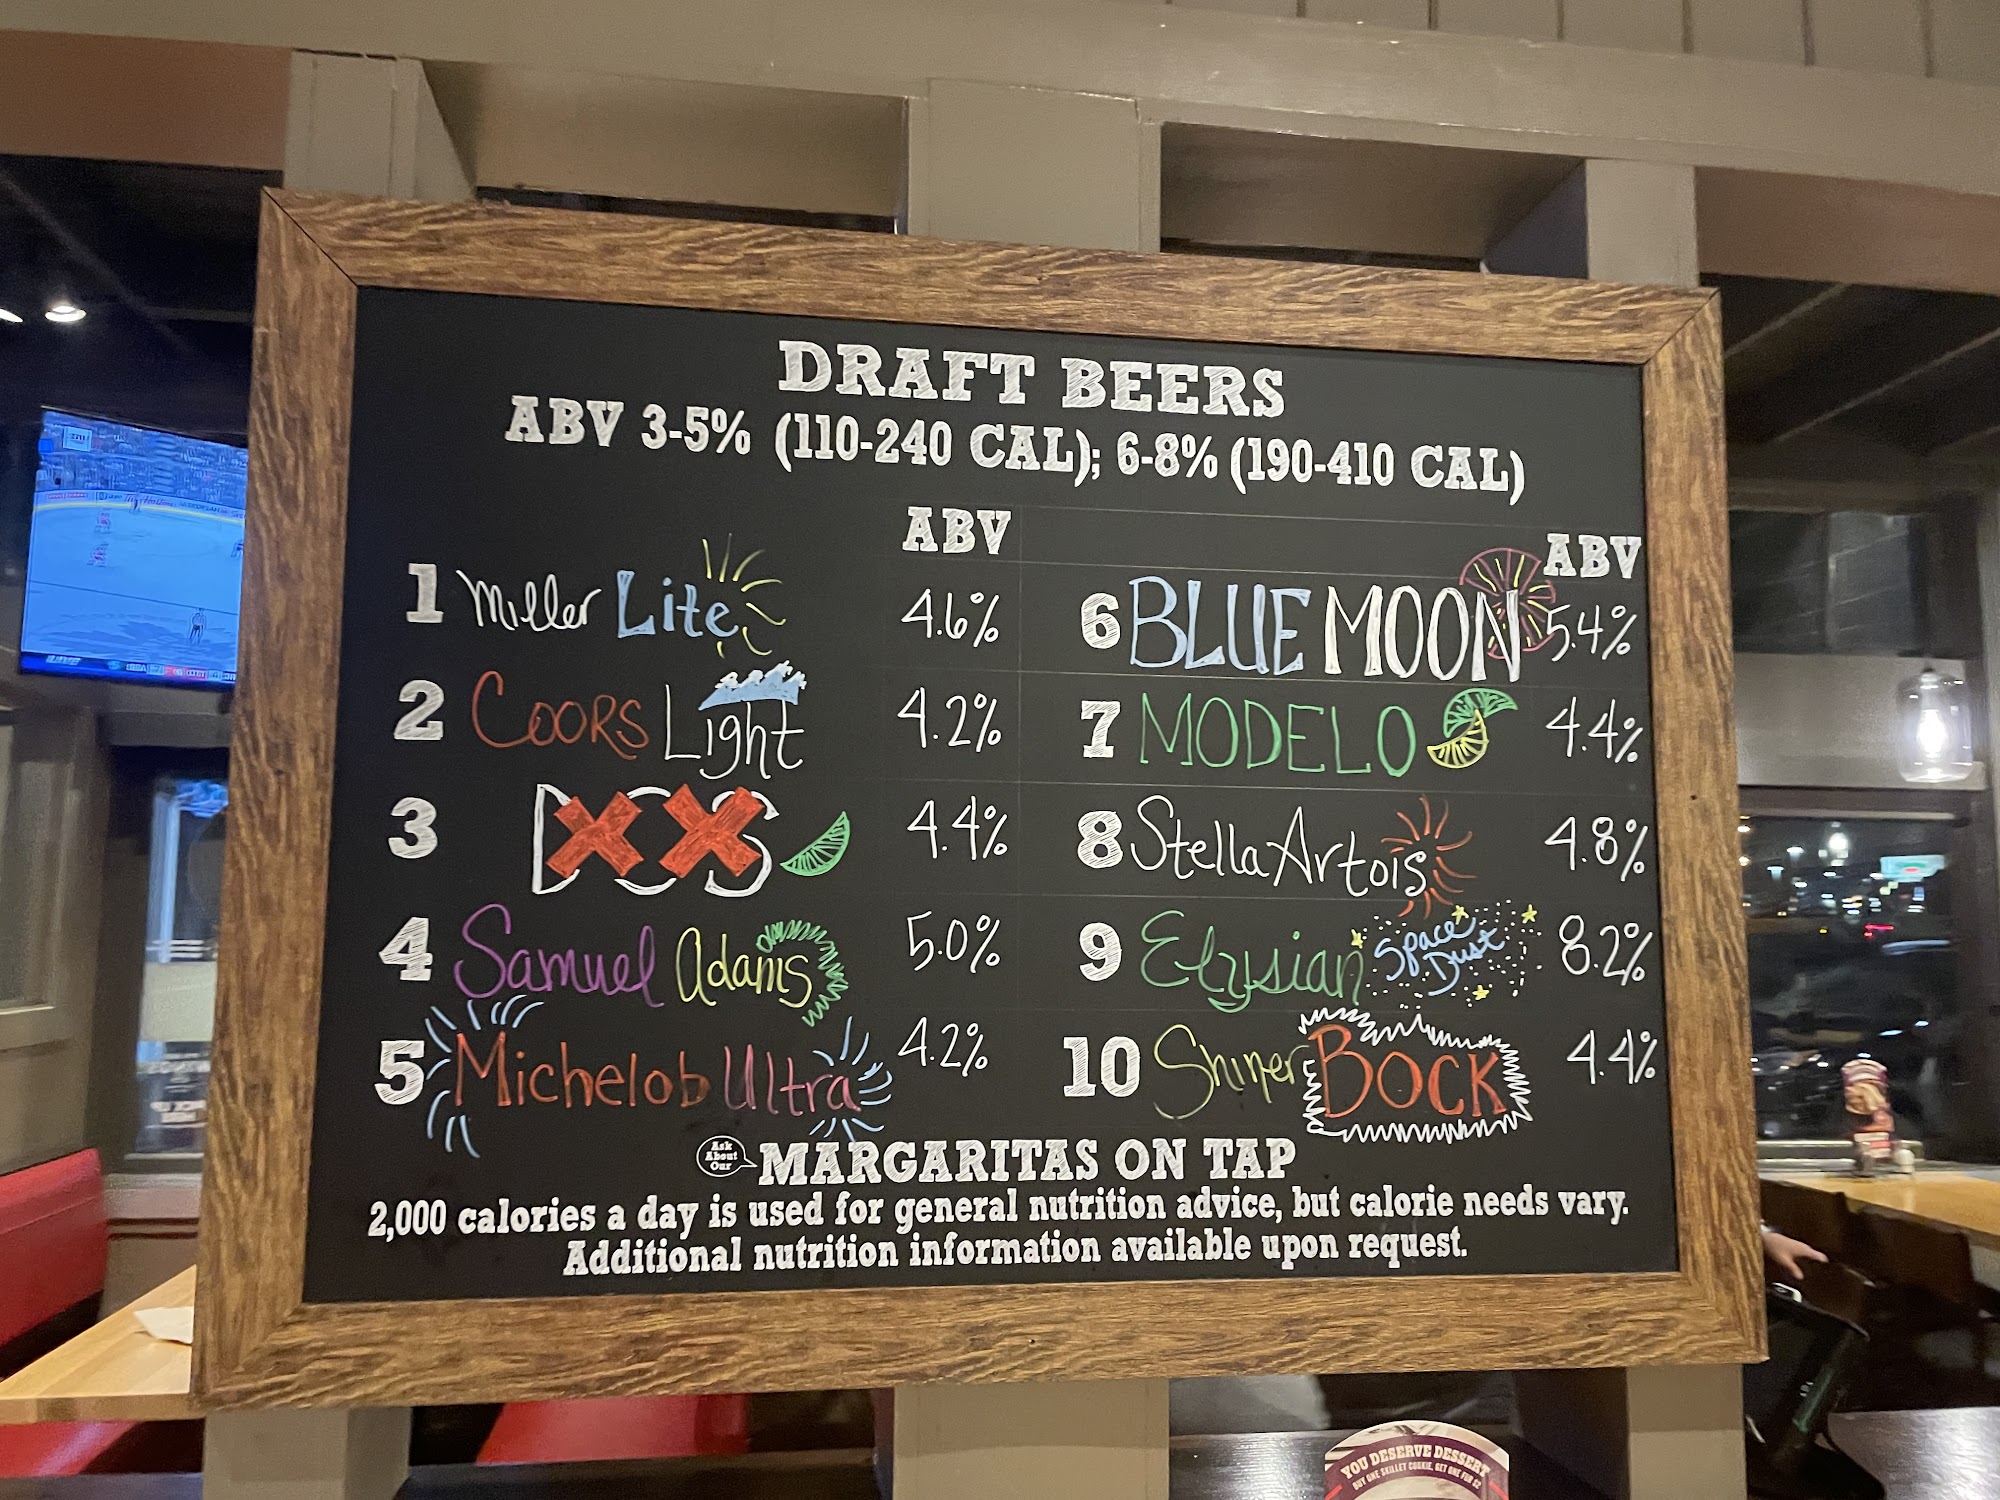 DRAFT BEERS
ABV 3-5% (110-240 CAL); 6-8% (190-410 CAL)
ABV
1 Miller Lite 4.6%
2 Coors Light 4.2%
3 DOS XX 4.4%
4 Samuel Adams 5.0%
5 Michelob Ultra 4.2%
ABV
6 BLUE MOON 5.4%
7 MODELO 4.4%
8 Stella Artois 4.8%
9 Elysian Space Dust 8.2%
10 Shiner BOCK 4.4%
Ask About Our MARGARITAS ON TAP
2,000 calories a day is used for general nutrition advice, but calorie needs vary.
Additional nutrition information available upon request.
YOU DESERVE DESSERT
BUY ONE SKILLET COOKIE, GET ONE FOR $2